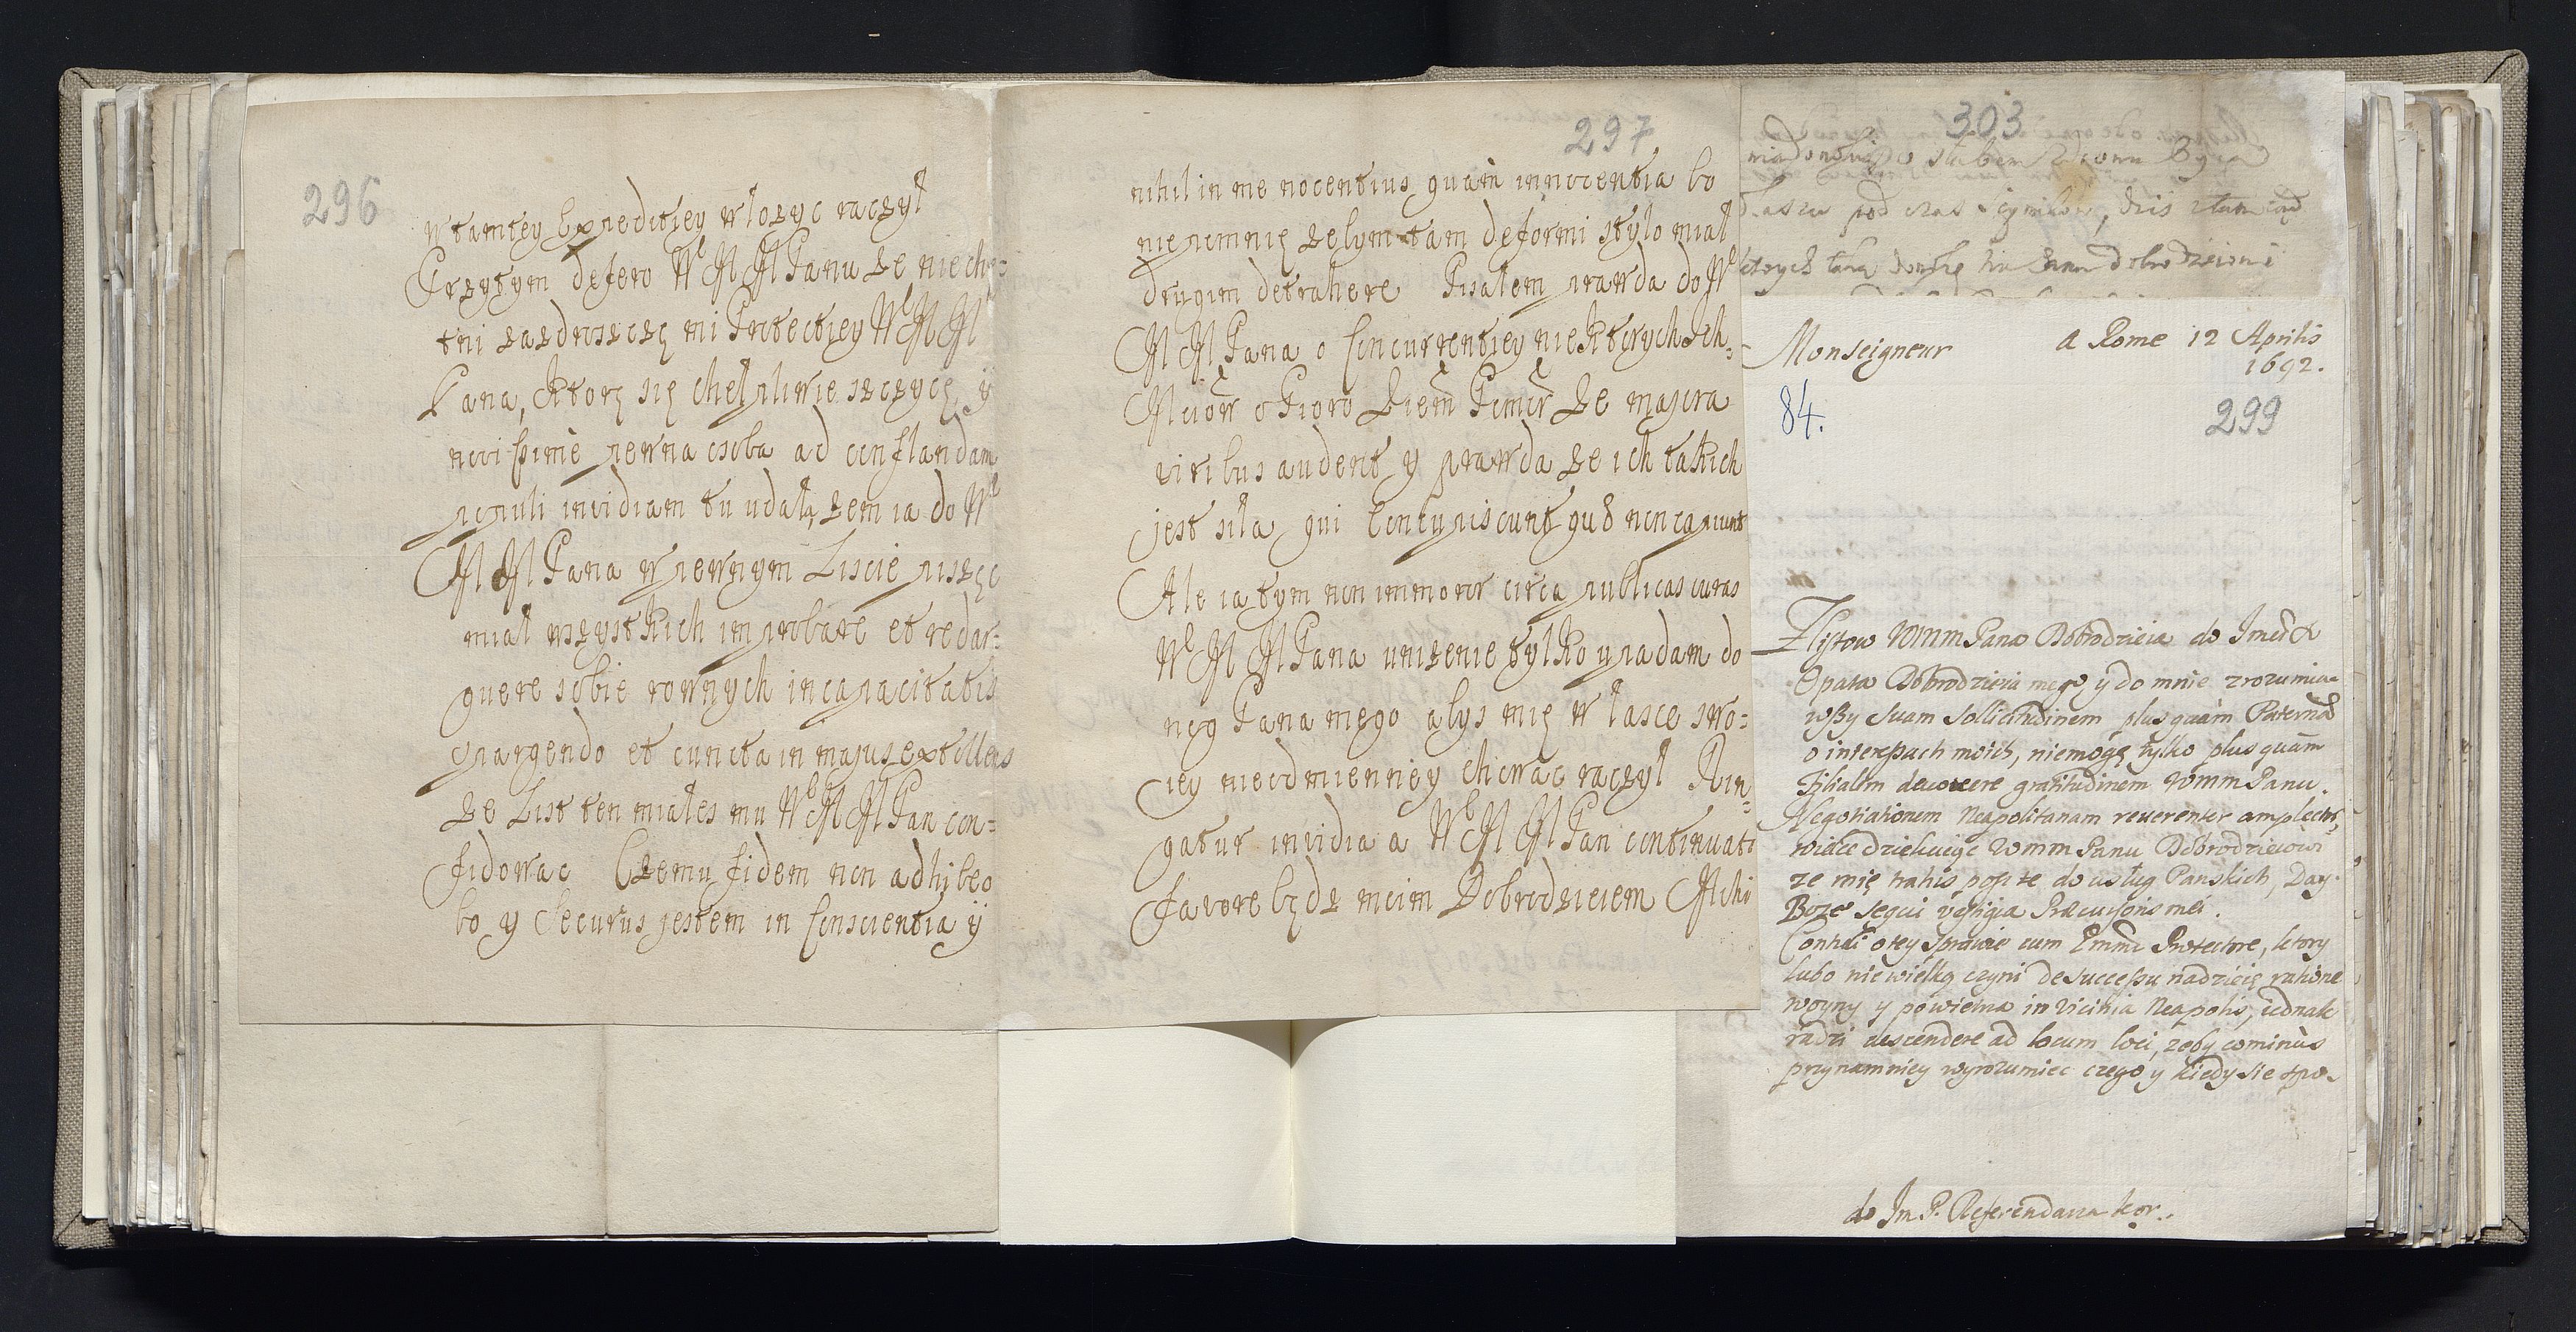 296
w tamtey Expeditiey włozyc raczył
Przytym defero Wᵉ M M Panu ze niech=
tni zazdroszczą mi Protectiey Wᵉ M M
Pana, Ktorą się chełpliwie szczycę, ÿ
novissimè pewna osoba ad conflandam
populi invidiam tu udała, zem ia do Wᵉ
M M Pana w pewnym Liscie pisząc
miał wszystkich improbare et redar=
guere sobie rownych incapacitatis
spargendo et cuncta in majus extollens
ze List ten miałes mu Wᵉ M M Pan con=
fidowac Czemu fidem non adhibeo
bo y Securus jestem in Conscientia ÿ
297
nihil in me nocentius quàm innocentia bo
nie pomnię zebym tam deformi stylo miał
drugim detrahere Pisałem prawda do Wᵉ
M M Pana o Concurrentiey niektorych Ich=
Mciow o Pioro Ziem Pomor ze majora
viribus audent y prawda ze ich takich
jest siła qui Concupiscunt quod non capiunt
Ale ia tym non immoror circa publicas curas
Wᵉ M M Pana unizenie tylko upadam do
nog Pana mego abys mię w łasce swo=
iey nieodmienney chować raczył Rin=
gatur invidia a Wᵉ M M Pan continuato
favore bądz moim Dobrodzieiem Mihi
303
pod czas
Monseigneur
a Rome 12 Aprilis
1692.
84.
299
Z listow WMM Pana Dobrodzieia do Imci X
Opata Dobrodzieia mego, ÿ do mnie zrozumia-
wszy Suam Sollicitudinem plus quàm Paternã
o interessach moich, niemogę tylko plus quàm
Filialem devovere gratitudinem WMM Panu.
Negotiationem Neapolitanam reverenter amplector,
wielce dziękuiąc WMM Panu Dobrodzieiowi
ze mię trahis post te do usług Panskich, Day
Boze sequi vestigia Præcursoris mei.
Contuli o tey sprawie cum Emmo Protectore, ktory
lubo niewielką czyni de successu nadzieię ratione
woyny y powietrza in Vicinia Neapolis, iednak
radzi descendere ad locum loci, zeby cominùs
przynamniey wyrozumiec czego y kiedy sie spo-
do Im P. Referendarza kor.